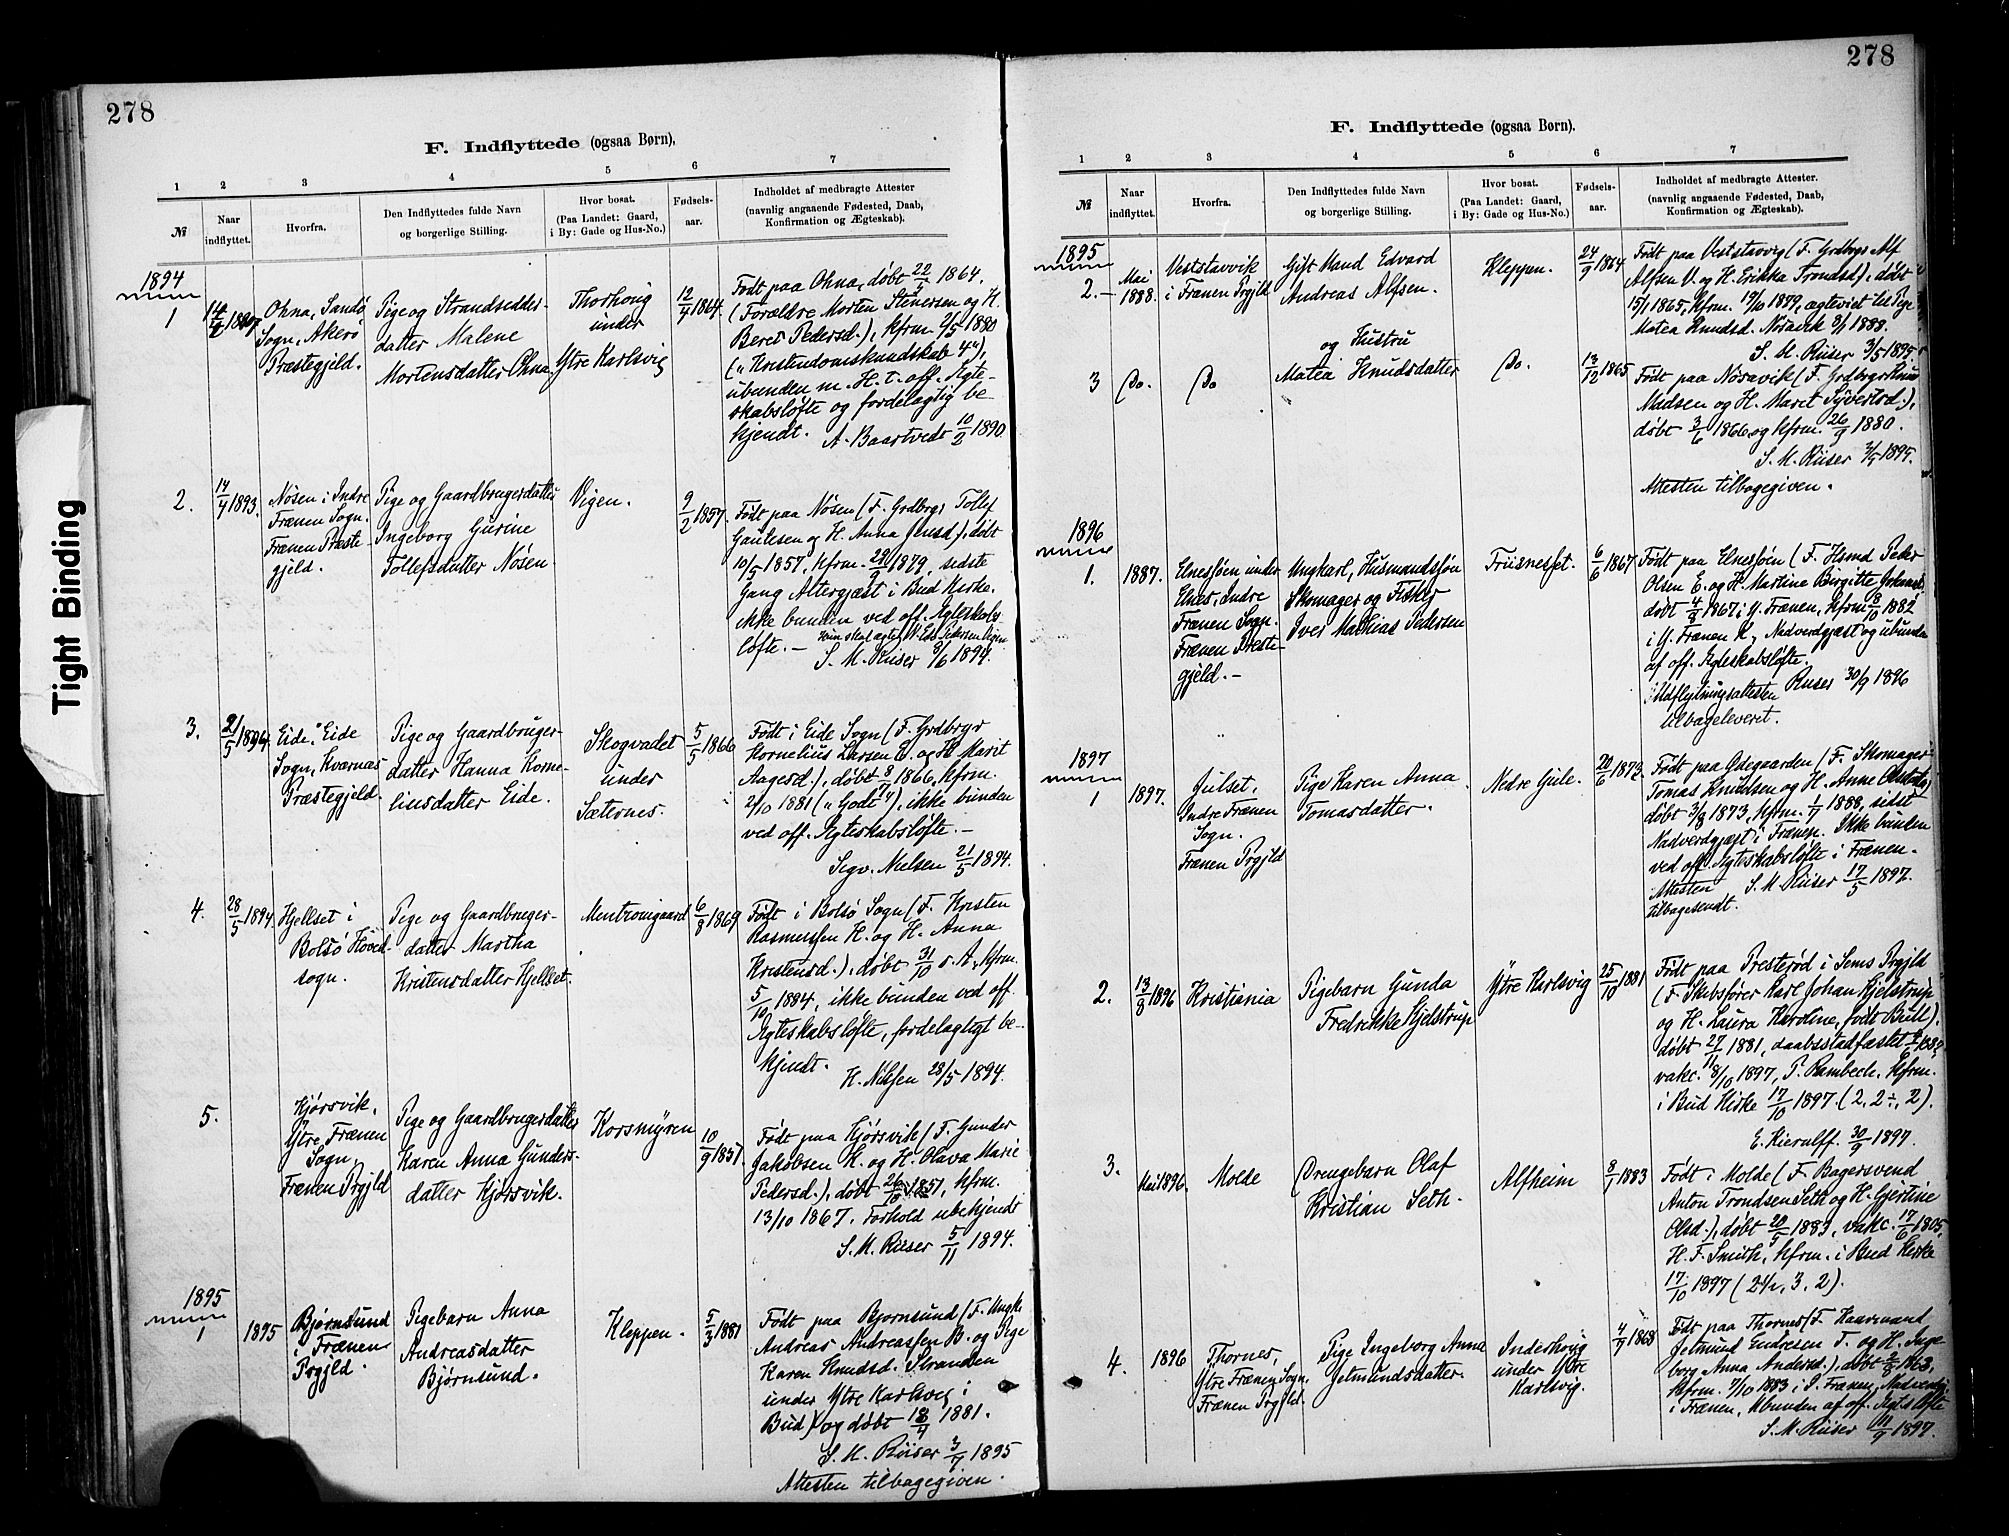 278
F. Indflyttede (ogsaa Børn),
1 2 3 4 5 6 7
№
Naar
indflyttet.
Hvorfra.
Den Indflyttedes fulde Navn
og borgerlige Stilling.
Hvor bosat.
(Paa Landet: Gaard,
i By: Gade og Hus-No.)
Fødsels-
aar.
Indholdet af medbragte Attester
(navnlig angaaende Fødested, Daab,
Konfirmation og Ægteskab).
1894
1
Ohna, Sandø
Sogn, Akerø
Præstegjeld.
Pige og Strandsidder-
datter Malene
Mortensdatter Ohna
Thorhoug
under
Ytre Karlsvig
12/4 1864.
Født paa Ohna, døbt 22/5 1864,
(Forældre Morten Stenersen og H.
Beret Pedersd.), kfrm. 2/5 1880
("Kristendomskundskab 4"),
ubunden m. H. t. off. Ægte-
skabsløfte og fordelagtig be-
kjendt. A. Baartvedt 10/2 1890.
2.
14/4 1893.
Nøsen i Indre
Frænen Sogn.
Frænen Præste-
gjeld.
Pige og Gaardbrugerdatter
Ingeborg Gurine
Tollefsdatter Nøsen
Vigen.
9/2 1857.
Født paa Nøsen (F. Grdbrgr Tollef
Gautesen og H. Anna Jensd.), døbt
10/5 1857, kfrm. 29/9 1879, sidste
Gang Altergjæst i Bud Kirke.
ikke bunden ved off. Ægteskabs-
løfte. –
S. M. Riiser 8/6 1894.
3.
21/5 1894.
Eide, Eide
Sogn, Kvarnæs
Præstegjeld.
Pige og Gaardbruger-
datter Hanna Korne-
liusdatter Eide.
Skogvadet
under
Sæternes.
5/5 1866
Født i Eide Sogn (F. Grdbrgr
Kornelius Larsen E. og H. Marit
Aagesd.), døbt 8/7 1866, kfrm.
2/10 1881 ("Godt"), ikke bunden
ved off. Ægteskabsløfte. –
Segv. Nielsen 21/5 1894.
4.
28/5 1894.
Hjellset i
Bolsø Hoved-
sogn.
Pige og Gaardbruger-
datter Martha
Kristensdatter Hjellset.
Mentromgaard
6/8 1869
Født i Bolsø Sogn (F. Kristen
Rasmussen H. og H. Anna
Kristensd.), døbt 31/10 s. A., kfrm.
5/10 1884, ikke bunden ved off.
Ægteskabsløfte, fordelagtigt be-
kjendt. H. Nilsen 28/5 1894.
5.
Hjørsvik,
Ytre Frænen
Sogn,
Frænen Prgjld
Pige og Gaardbrugerdatter
Karen Anna Gunders-
datter Hjørsvik.
Korsmyren
10/9 1851.
Født paa Hjørsvik (F. Gunder
Jakobsen H. og H. Olava Marie
Pedersd.), døbt 26/10 1851, kfrm.
13/10 1867. Forhold ubekjendt
S. M. Riiser 5/11 1894.
1895
1
1895
Bjørnsund
i Frænen
Prgjld.
Pigebarn Anna
Andreasdatter
Bjørnsund.
Kleppen.
5/3 1881
Født paa Bjornsund (F. Ungk.
Andreas Andreassen B. og Pige
Karen Knudsd. Stranden
under Ytre Karlsvig i
Bud) og døbt 18/4 1881.
S. M. Riiser 3/7 1895
Attesten tilbagegiven.
278
F. Indflyttede (ogsaa Børn).
1 2 3 4 5 6 7
№
Naar
indflyttet.
Hvorfra.
Den Indflyttedes fulde Navn
og borgerlige Stilling.
Hvor bosat.
(Paa Landet: Gaard,
i By: Gade og Hus-No.)
Fødsels-
aar.
Indholdet af medbragte Attester.
(navnlig angaaende Fødested, Daab,
Konfirmation og Ægteskab).
1895
2. –
Mai
1888.
Veststavvik
i Frænen Prgjld
Gift Mand Edvard
Andreas Alfsen.
Kleppen.
24/9 1864
Født paa Veststavvig (F. Grdbrgr Alf
Alfsen V. og H. Erikka Trondsd.), døbt
15/1 1865, kfrm. 19/10 1879, ægteviet til Pige
Matea Knudsd. Nøsavik 8/1 1888.
S. M. Riiser 3/5 1895.
3
Do.
Do
og Hustru
Matea Knudsdatter
Do.
13/12 1865
Født paa Nøsavik (F. Grdbrgr Knud
Madsen og H. Maret Syvertsd.),
døbt 3/6 1866, og kfrm. 26/9 1880.
S. M. Riiser 3/5 1895.
Attesten tilbagegiven.
1896
1.
1887.
Elnesføen under
Elnes, Indre
Frænen Sogn.
Frænen Præste-
gjeld. –
Ungkarl, Husmandssøn
Skomager og Fisker
Iver Mathias Pedersen
Friisneset.
6/6 1867
Født paa Elnesføen (F. Hsmd Peder
Olsen E. og H. Martine Birgitte
døbt 4/8 1867 i Y. Frænen, kfrm 8/10 1882
i Y. Frænen K., Nadverdgjæst og ubunden
af off. Ægteskabsløfte.
Udflytningsattesten Riiser 30/9 1896
tilbageleveret.
1897
1
1897.
Julset,
Indre Frænen
Sogn.
Frænen Prgjld
Pige Karen Anna
Tomasdatter.
Nedre Gule.
20/6 1873.
Født paa Ødegaarden (F. Skomager
Tomas Knudsen og H. Anne
døbt 3/8 1873, kfrm. 1/7 1888, sidst
Nadverdgjæst i Frænen. Ikke bunden
ved off. Ægteskabsløfte i Frænen.
Attesten S. M. Riiser 17/5 1897.
tilbagesendt.
2.
13/8 1896
Kristiania
Pigebarn Gunda
Fredrikke Hjelstrup
Ytre Karlsvig
25/10 1881
Født paa Presterød i Sems Prgjld
(F. Skibsfører Karl Johan Hjelstrup
og H. Laura Karoline, født Bull).
døbt 27/11 1881, daabsstadfæstet
vakc. 8/10 1897, P. Rambech. kfrm.
i Bud Kirke 17/10 1897. (2, 2÷, 2).
E. Kierulff. 30/9 1897.
3.
Mai 1896.
Molde
Drengebarn Olaf
Kristian Seth.
Alfheim
8/1 1883
Født i Molde (F. Bagersvend
Anton Trondsen Seth og H. Gjertine
Olsd.), døbt 20/5 1883, vakc. 17/6 1895,
H. F. Smith, kfrm. i Bud Kirke
17/10 1897 (2½, 3, 2).
4.
1896
Thornes,
Ytre Frænen Sogn.
Frænen Prgjld.
Pige Ingeborg Anna
Jetmundsdatter.
Inderhoug
under Ytre
Karlsvig.
4/9 1868
Født paa Thornes (F. Kaarmand
Jetmund Endresen T. og H. Inge-
borg Anna Andersd.), døbt
kfrm. 7/10 1883 i Y. Frænen, Nadverdgj.
i Frænen, Ubunden af off. Ægtsløfte
S. M. Riiser 11/9 1897.
Tight Binding